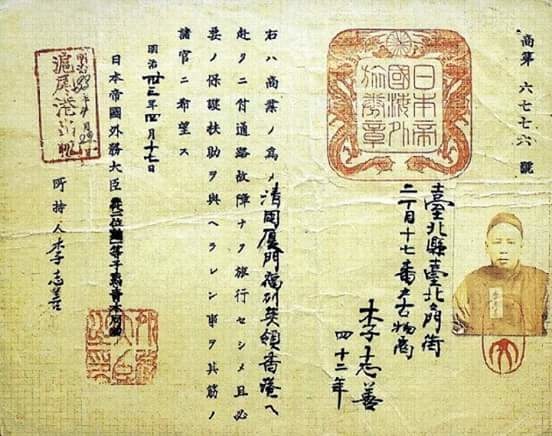 商第六七七六號
日本帝
國海外
旅券章
臺北縣臺北北門街
二丁目十七番戶古物商
李志善
四十二年
右ハ商業ノ為メ清國廈門福州英領香港ヘ
赴クニ付通路故障ナク旅行セシメ且必
要ノ保護扶助ヲ與ヘラレン事ヲ其筋ノ
諸官ニ希望ス
明治卅三年四月十七日
日本帝國外務大臣
所持人李志善
明治33年4月
滬尾港